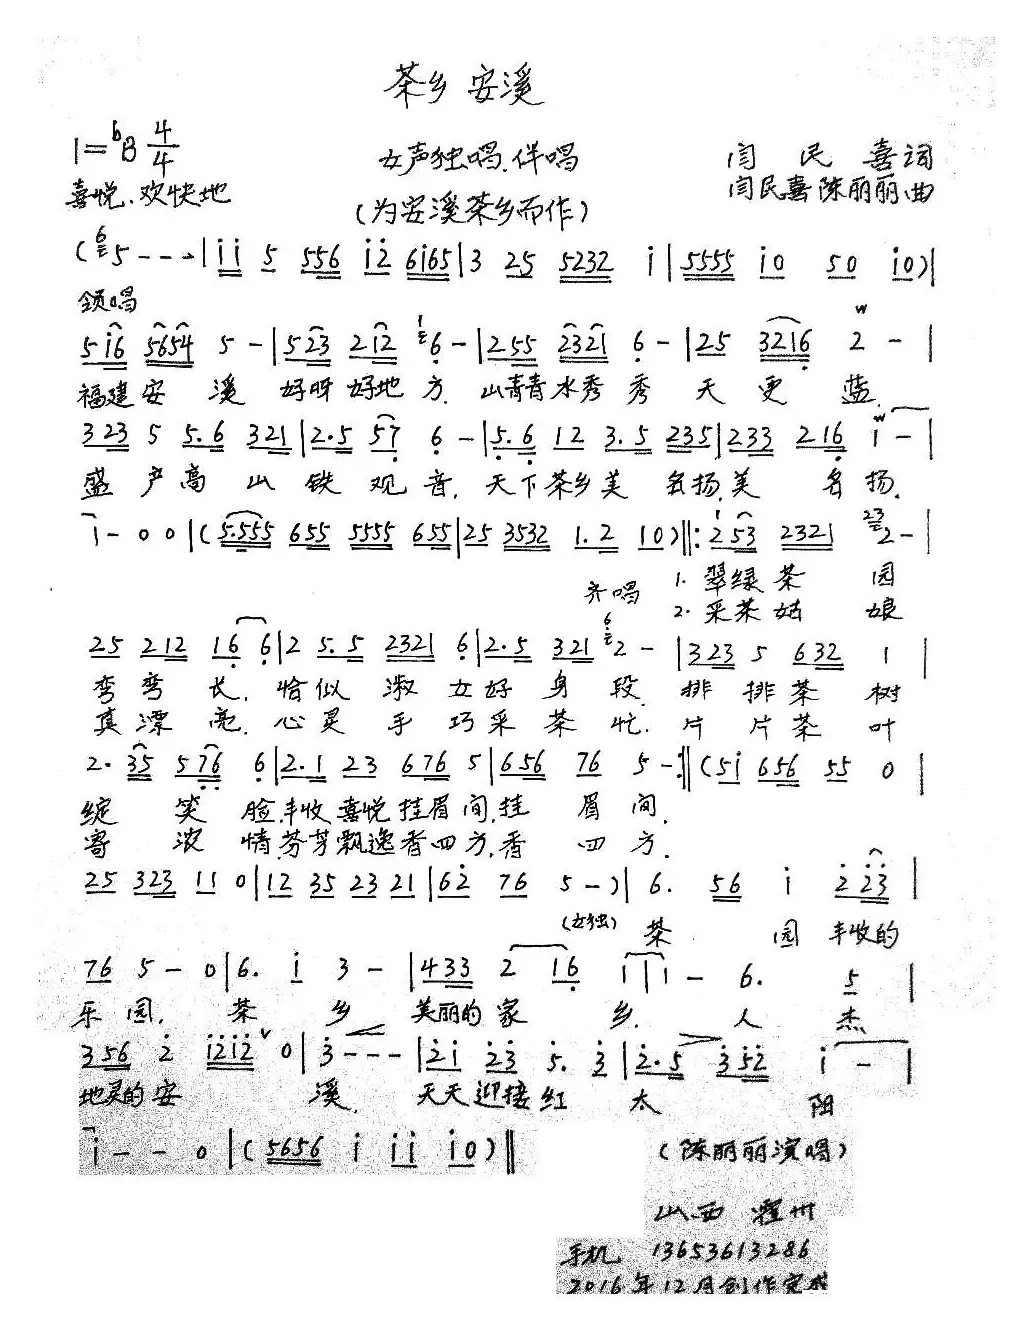 茶乡 安溪
1=bB 4/4
女声独唱.伴唱
闫 民 喜 词
喜悦、欢快地
(为安溪茶乡而作)
闫民喜 陈丽丽 曲
(6 5 - - - | i i 5 556 i2 6i65 | 3 25 5232 i | 5555 i0 50 i0) |
领唱
5i6 5654 5 - | 523 212 1 6 - | 255 2321 6 - | 25 3216 2 - |
福建安 溪 好呀 好地 方. 山青青水秀 秀 天 更 蓝.
323 5 5.6 321 | 2.5 57 6 - | 5.6 12 3.5 235 | 233 216 i - |
盛 产 高 山 铁 观 音. 天下茶乡美 名扬.美 名 扬.
i - 0 0 | (5.555 655 5555 655 | 25 3532 1.2 10) ‖: 253 2321 23 2 - |
齐唱 1. 翠绿 茶 园
2. 采茶 姑 娘
25 212 16 6 | 2 5.5 2321 6 | 2.5 321 6 2 - | 323 5 632 1 |
弯 弯 长. 恰 似 淑 女 好 身 段. 排 排 茶 树
真 漂 亮. 心 灵 手 巧 采 茶 忙. 片 片 茶 叶
2. 35 576 6 | 2.1 23 676 5 | 656 76 5 - :‖ (5i 656 55 0
绽 笑 脸.丰收 喜悦 挂眉 间.挂 眉 间.
寄 浓 情.芬芳飘逸香四方.香 四 方.
25 323 11 0 | 12 35 23 21 | 62 76 5 -) | 6. 56 i 2 23 |
(女独) 茶 园 丰收的
76 5 - 0 | 6. i 3 - | 433 2 16 i | i - 6. 5 |
乐 园. 茶 乡 美丽的 家 乡. 人 杰
356 2 i2i2 v 0 | 3 - - - | 2i 23 5. 3 | 2.5 352 i - |
地灵的安 溪. 天天迎接红 太 阳
i - - 0 | (5656 i ii i0) ‖
(陈丽丽演唱)
山西 霍州
手机 13653613286
2016年12月创作完成